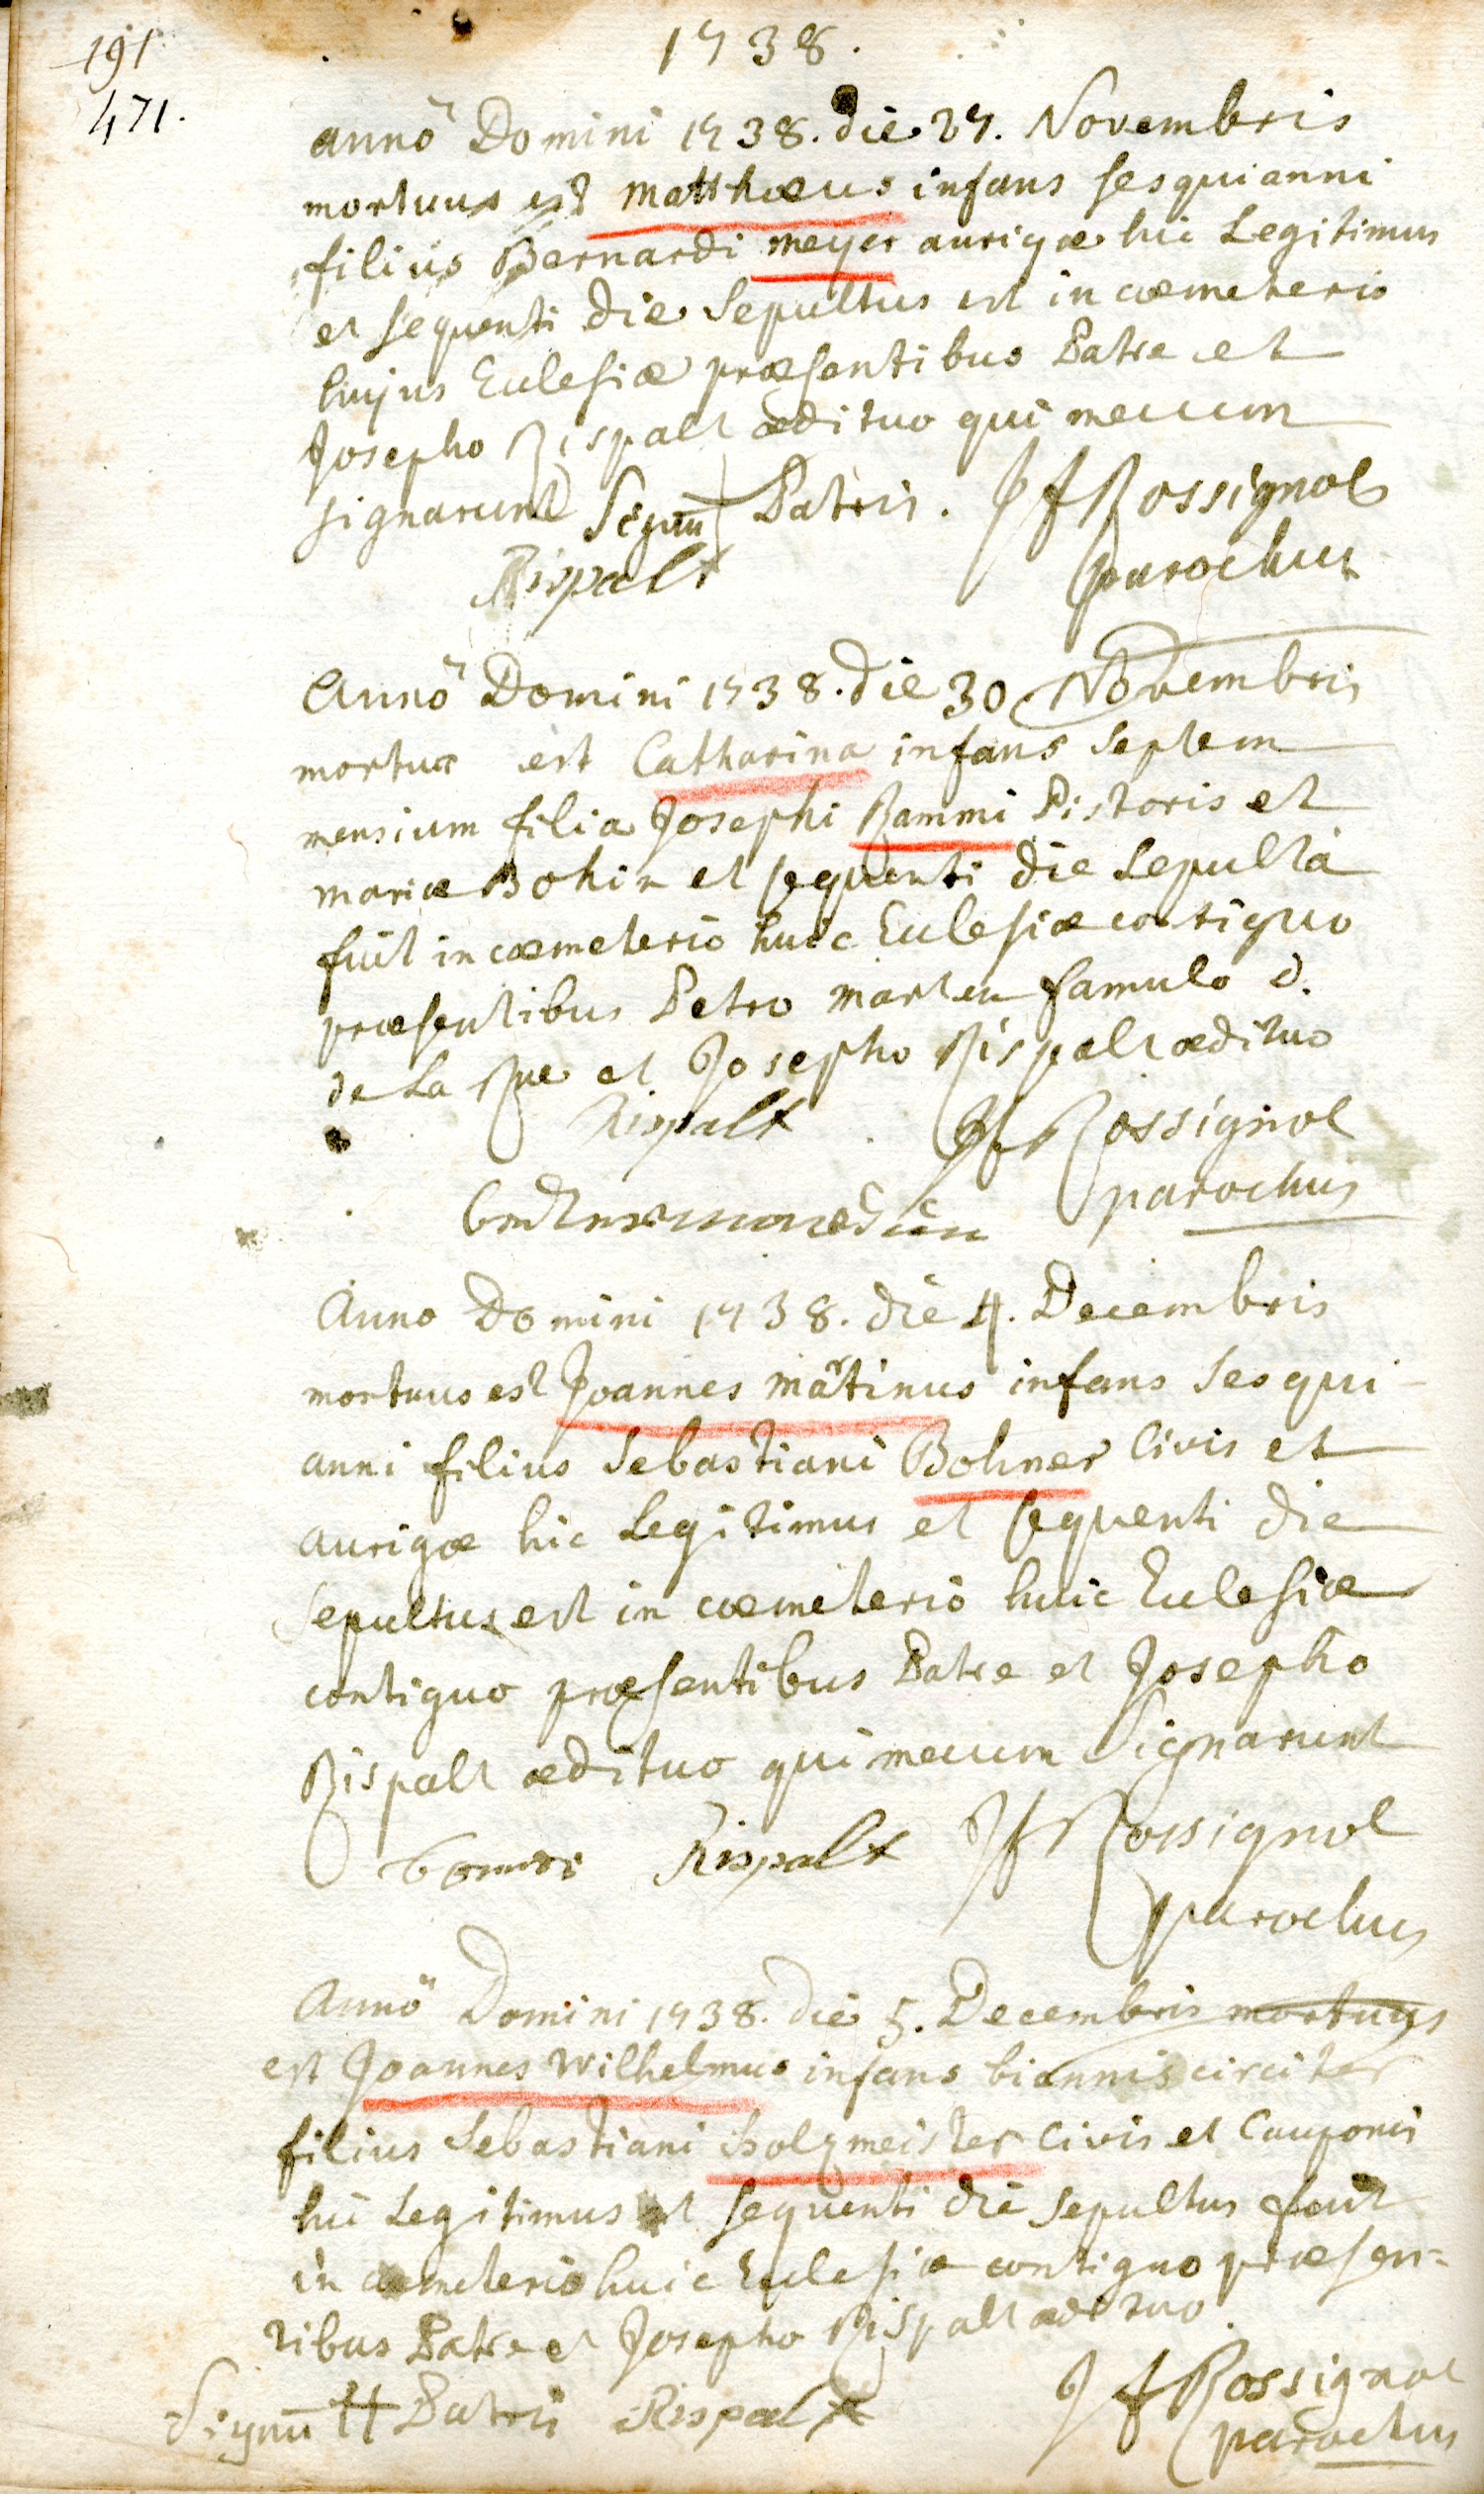 191
471.
1738.
annö Domini 1738. die 27. Novembris
mortuus est Matthæus infans sesquianni
filius Bernardi meyer aurigæ hic Legitimus
et sequenti die Sepultus est in cæmeterio
hujus Ecclesiæ præsentibus Patre et
Josepho Rispalt ædituo qui mecum
signarunt Signū Patris. JfRossignol
Rispalt parochus
Annö Domini 1738. die 30 Novembris
mortua est Catharina infans Septem
mensium filia Josephi Rammi Pistoris et
mariæ Bohin et sequenti die Sepulta
fuit in cæmeterio huic Ecclesiæ contiguo
præsentibus Petro marten famulo d.
de La Rue et Josepho Rispalt ædituo
Rispalt JfRossignol
parochus
Anno Domini 1738. die 4. Decembris
mortuus est Joannes martinus infans Sesqui
anni filius Sebastiani Bohner Civis et
aurigæ hic Legitimus et sequenti die
Sepultus est in cæmeterio huic Ecclesiæ
contiguo præsentibus Patre et Josepho
Rispalt ædituo qui mecum Signarunt
Rispalt JfRossignol
parochus
Annö Domini 1738. die 5. Decembris mortuus
est Joannes Wilhelmus infans biennis circiter
filius Sebastiani Holzmeister Civis et Cauponis
hic Legitimus et sequenti die Sepultus fuit
in cæmeterio huic Ecclesiæ contiguo præsen=
tibus Patre et Josepho Rispalt ædituo.
Signū H Patris Rispalt JfRossignol
parochus